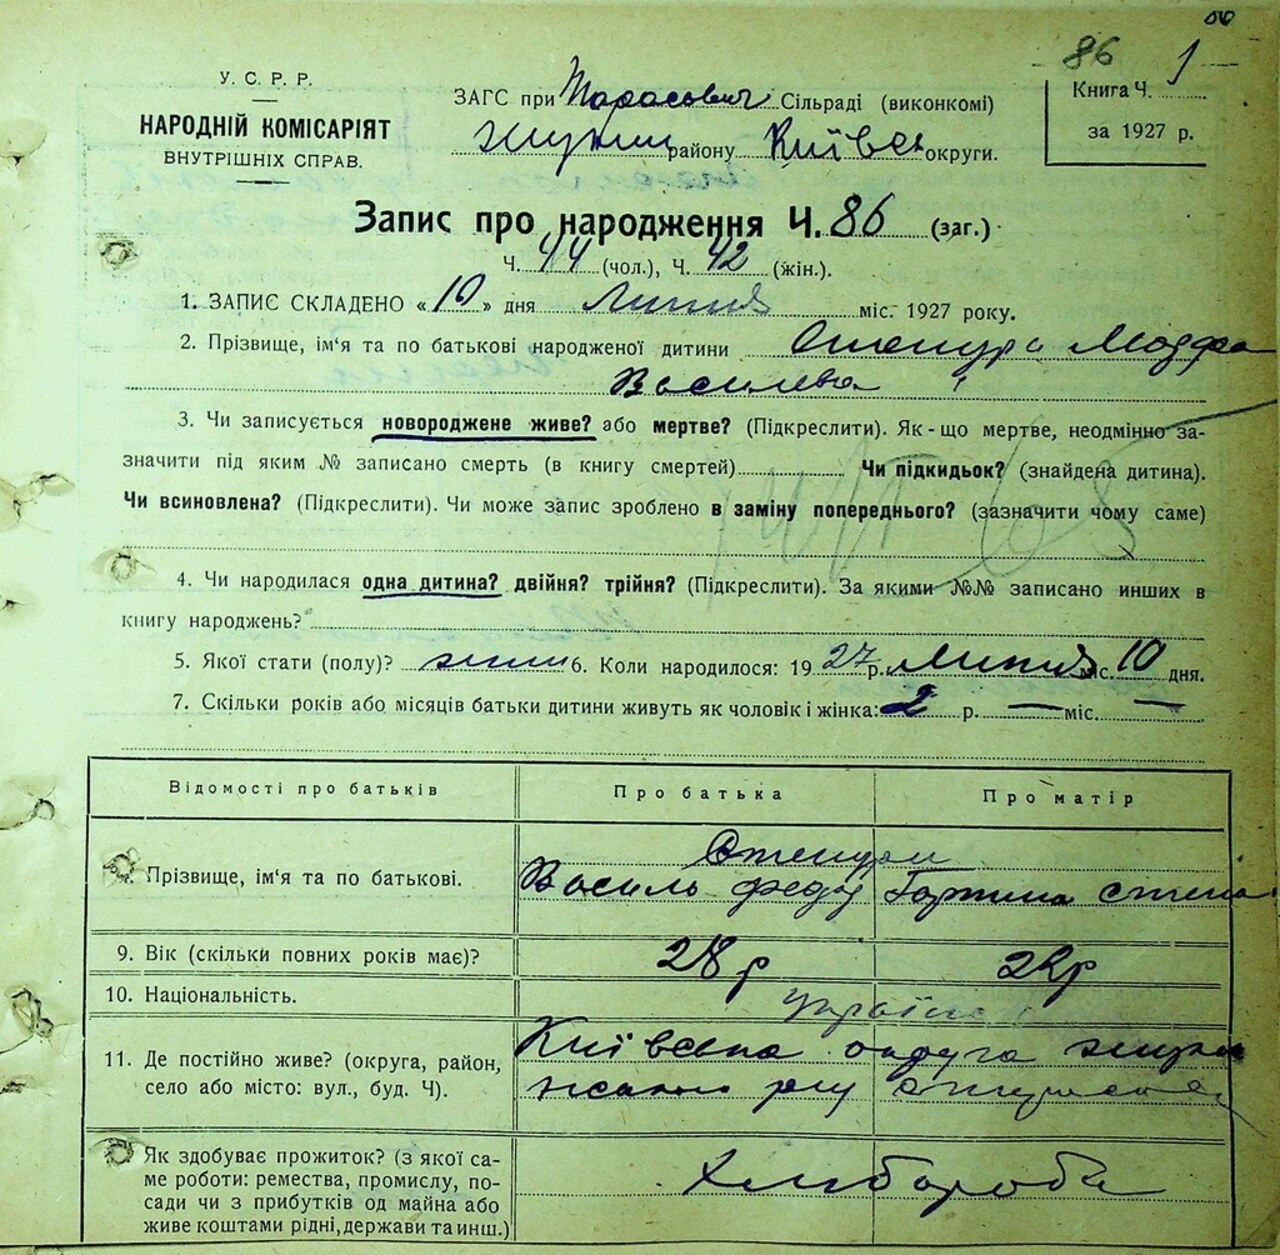 86 1
У. С. Р. Р.
НАРОДНІЙ КОМІСАРІЯТ
ВНУТРІШНІХ СПРАВ.
ЗАГС при Тарасович Сільраді (виконкомі)
району Київськ округи.
Книга Ч.
за 1927 р.
Запис про народження Ч. 86 (заг.)
Ч. 44 (чол.), Ч. 42 (жін.).
1. ЗАПИС СКЛАДЕНО «10» дня Липня міс. 1927 року.
2. Прізвище, ім'я та по батькові народженої дитини
Василева
3. Чи записується новороджене живе? або мертве? (Підкреслити). Як-що мертве, неодмінно за-
значити під яким № записано смерть (в книгу смертей) Чи підкидьок? (знайдена дитина).
Чи всиновлена? (Підкреслити). Чи може запис зроблено в заміну попереднього? (зазначити чому саме)
4. Чи народилася одна дитина? двійня? трійня? (Підкреслити). За якими №№ записано инших в
книгу народжень?
5. Якої стати (полу)? 6. Коли народилося: 1927 р. Липня міс. 10 дня.
7. Скільки років або місяців батьки дитини живуть як чоловік і жінка: 2 р. — міс. —
Відомості про батьків Про батька Про матір
Прізвище, ім'я та по батькові. Василь Федор
9. Вік (скільки повних років має)? 28 р 22 р
10. Національність. Україн
11. Де постійно живе? (округа, район, Київська округа
село або місто: вул., буд. Ч).
Як здобуває прожиток? (з якої са-
ме роботи: ремества, промислу, по- Хлібороби
сади чи з прибутків од майна або
живе коштами рідні, держави та инш.)